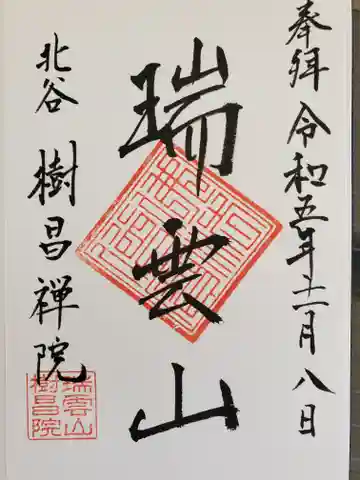 奉拝 令和五年十一月八日
瑞雲山
北谷 樹昌禅院
瑞雲山
樹昌院